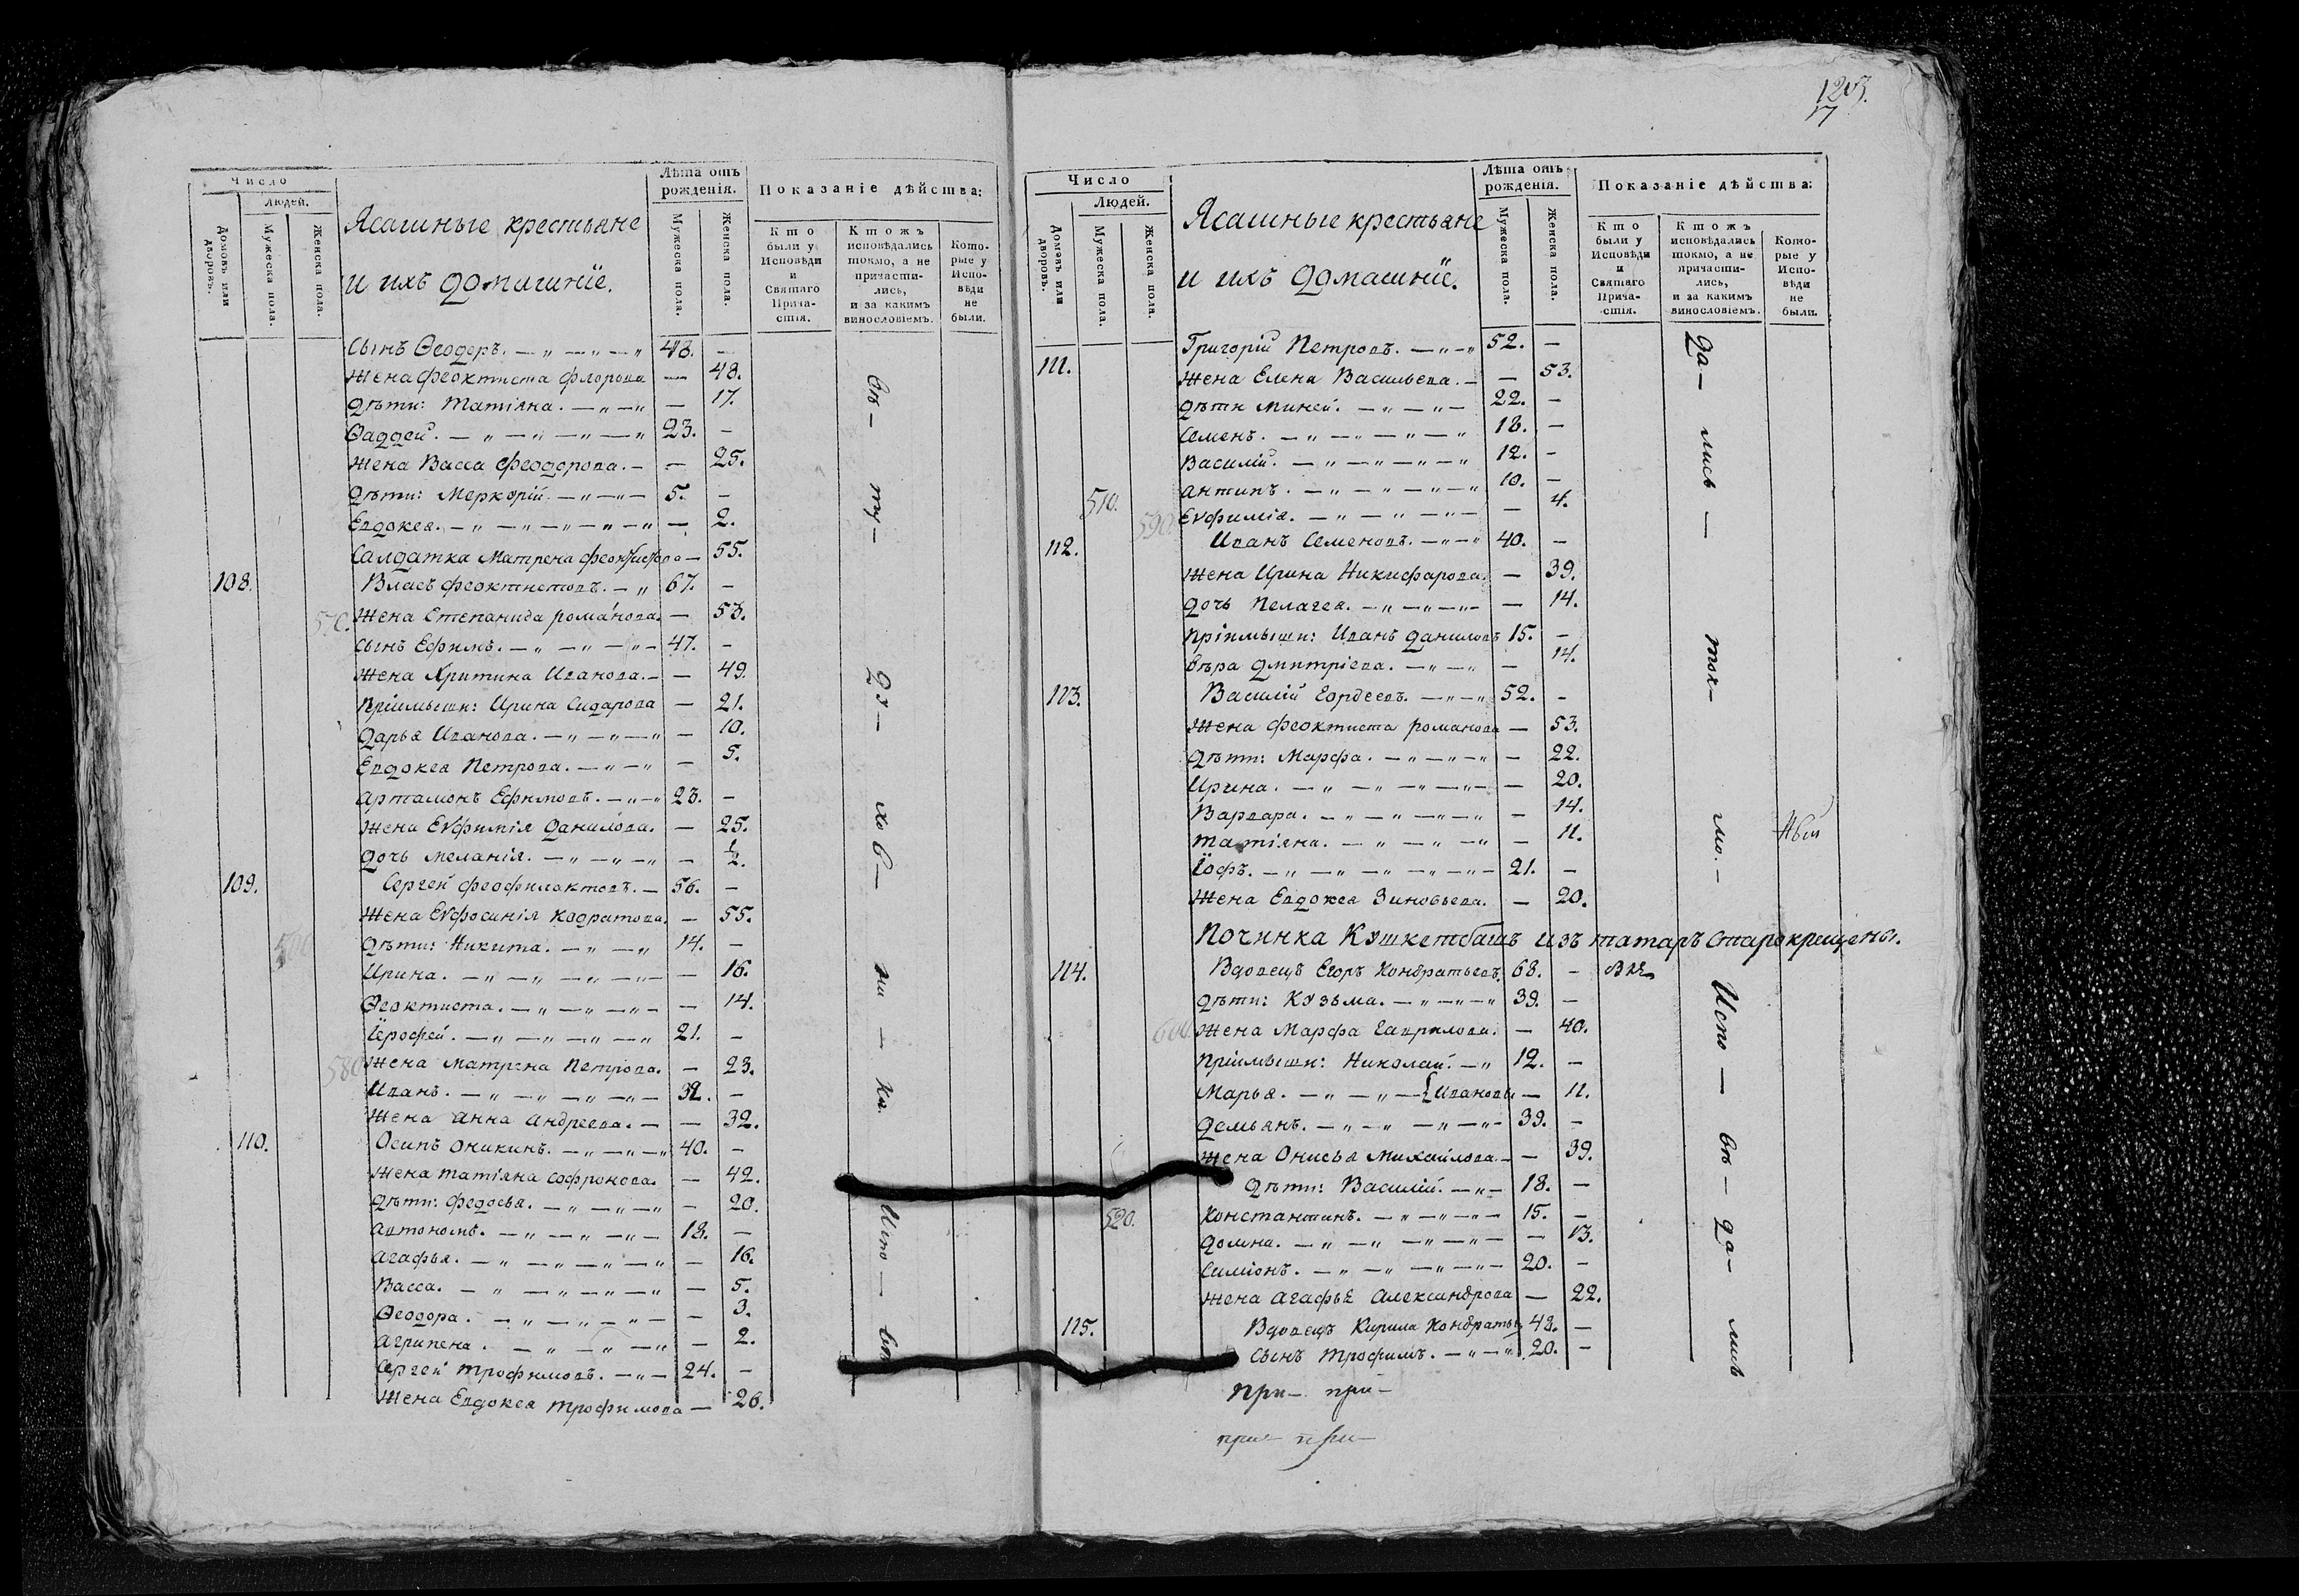 Число
Людей.
Домовъ или дворовъ.
Мужеска пола.
Женска пола.
Ясашныя крестьяне
и ихъ домашнїе.
Лѣта отъ
рожденія.
Мужеска пола.
Женска пола.
Показаніе дѣйства:
Кто
были у
Исповѣди
и
Святаго
Прича-
стія.
Ктожъ
исповѣдались
токмо, а не
причасти-
лись,
и за какимъ
винословіемъ.
Кото-
рые у
Испо-
вѣди
не
были.
Сынъ Ѳеодоръ. 43. —
Жена Феоктиста Флорова — 48.
Дѣти: Татіяна. — 17.
Ѳаддей. 23. —
Жена Васса Феодорова. — 25.
Дѣти: Меркорїй. 5. —
Евдокея. — 2.
Салдатка Матрена Феоктистова — 55.
108. Власъ Феоктистовъ. 67. —
570. Жена Степанида романова. — 53.
Сынъ Ефимъ. 47. —
Жена Хритина Иванова. — 49.
Прїимыши: Ирина Сидарова — 21.
Дарья Иванова. — 10.
Евдокея Петрова. — 5.
Артамонъ Ефимовъ. 23. —
Жена Еѵфимїя Данилова. — 25.
Дочь Меланїя. — ½.
109. Сергей Феофилактовъ. 56. —
Жена Еѵфосинїя Кодратова. — 55.
500 Дѣти: Никита. 14. —
Ирина. — 16.
Ѳеоктиста. — 14.
Їерофей. 21. —
580 Жена Матрена Петрова. — 23.
Иванъ. 32. —
Жена Анна Андреева. — 32.
110. Осипъ Оникинъ. 40. —
Жена Татїяна Софронова. — 42.
Дѣти: Федосья. — 20.
Автономъ. 18. —
Агафья. — 16.
Васса. — 5.
Ѳеодора. — 3.
Агрипена. — 2.
Сергей Трофимовъ. 24. —
Жена Евдокея Трофимова — 26.
Испо — вѣ
1203.
17
Число
Людей.
Домовъ или дворовъ.
Мужеска пола.
Женска пола.
Ясашныя крестьяне
и ихъ домашнїе.
Лѣта отъ
рожденія.
Мужеска пола.
Женска пола.
Показаніе дѣйства:
Кто
были у
Исповѣди
и
Святаго
Прича-
стія.
Ктожъ
исповѣдались
токмо, а не
причасти-
лись,
и за какимъ
винословіемъ.
Кото-
рые у
Испо-
вѣди
не
были.
111. Григорїй Петровъ. 52. —
Жена Елена Васильева. — 53.
Дѣти Миней. 22. —
Семенъ. 18. —
Василїй. 12. —
510. Антипъ. 10. —
590. Еѵфимїя. — 4.
112. Иванъ Семеновъ. 40. —
Жена Ирина Никифарова. — 39.
Дочь Пелагея. — 14.
Прїимыши: Иванъ Даниловъ 15. —
Вѣра Дмитрїева. — 14.
113. Василїй Гордеевъ. 52. —
Жена Феоктиста романова — 53.
Дѣти: Марфа. — 22.
Ирина. — 20.
Варвара. — 14.
Татїяна. — 11.
Їофъ. 21. —
Жена Евдокея Зиновьева. — 20.
Починка Кушкетбашъ изъ татаръ старокрещены.
114. Вдовецъ Егоръ Кондратьевъ. 68. —
Дѣти: Кузьма. 39. —
600. Жена Марфа Гаврилова. — 40.
Прїимыши: Николай. 12. —
Марья. { Ивановы — 11.
Демьянъ. 39. —
Жена Онисья Михайлова. — 39.
Дѣти: Василїй. 18. —
520. Константинъ. 15. —
Домна. — 13.
Симїонъ. 20. —
Жена Агафья Александрова — 22.
115. Вдовецъ Кирила Кондратьевъ 48. —
Сынъ Трофимъ. 20. —
да — лись — ток — мо. — Испо — вѣ — да — лись
При — при —
при — при —